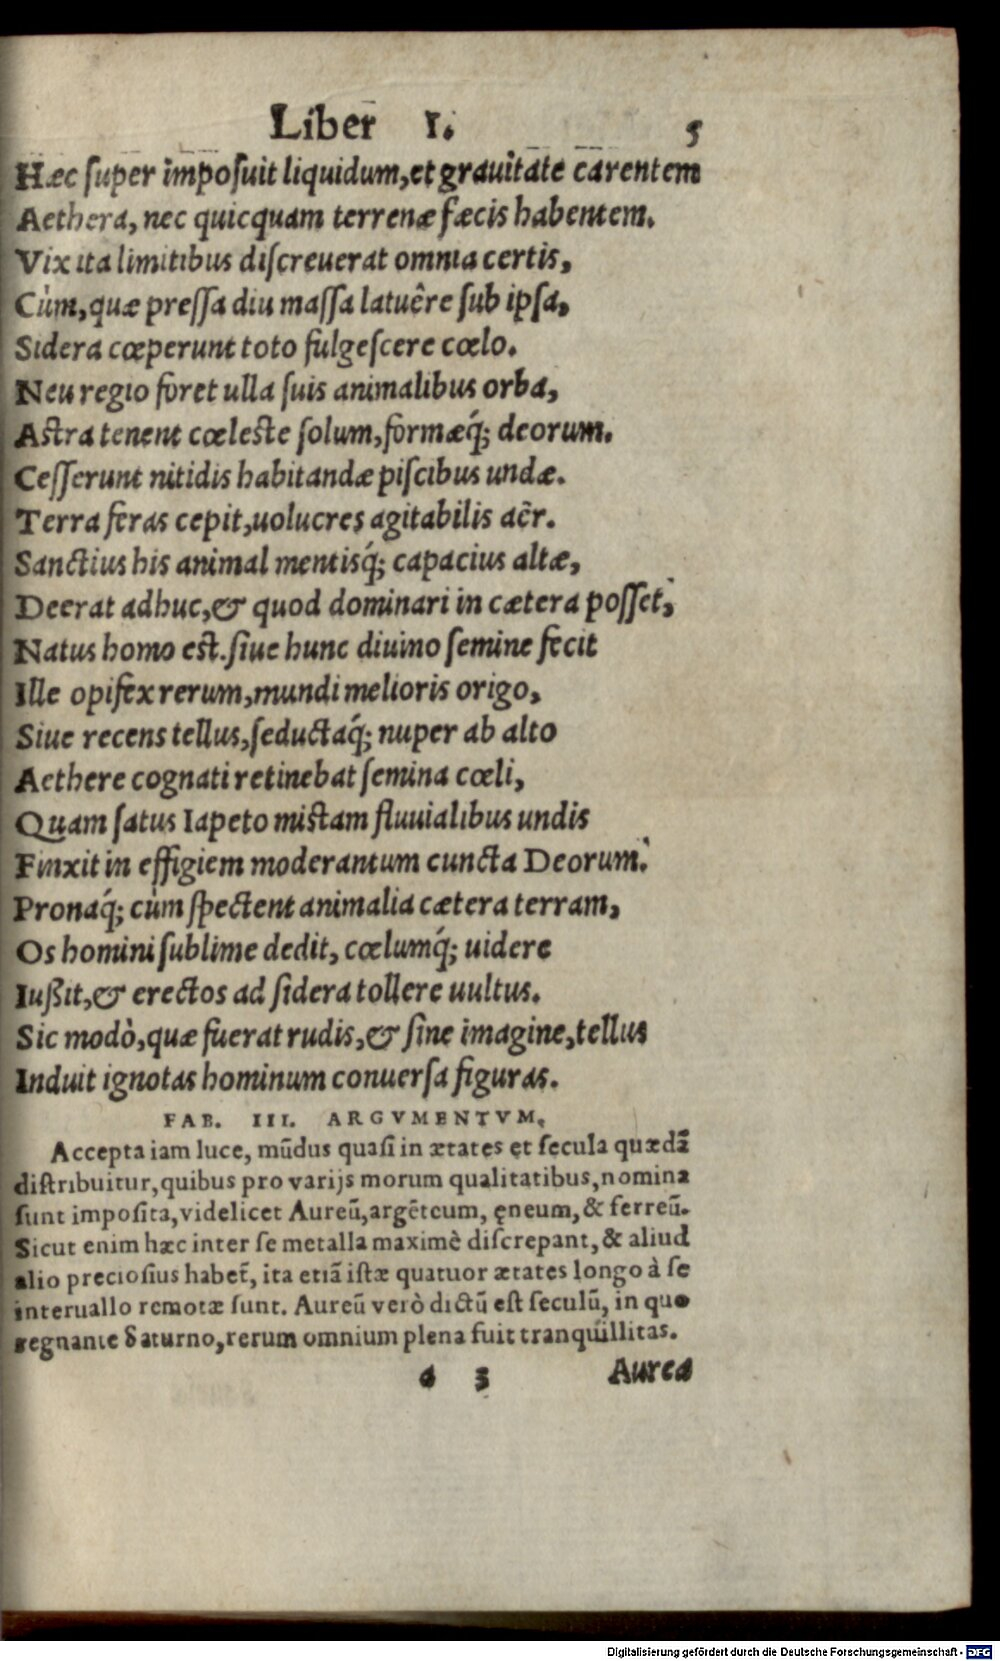 Liber I. 5
Hæc ſuper impoſuit liquidum,et grauitate carentem
Aethera, nec quicquam terrenæ fæcis habentem.
Vix ita limitibus diſcreuerat omnia certis,
Cùm,quæ preſſa diu maſſa latuêre ſub ipſa,
Sidera cœperunt toto fulgeſcere cœlo.
Neu regio foret ulla ſuis animalibus orba,
Aſtra tenent cœleſte ſolum,formæq́; deorum.
Ceſſerunt nitidis habitandæ piſcibus undæ.
Terra feras cepit,uolucres agitabilis aër.
Sanctius his animal mentisq́; capacius altæ,
Deerat adhuc,& quod dominari in cætera poſſet,
Natus homo eſt.ſiue hunc diuino ſemine fecit
Ille opifex rerum,mundi melioris origo,
Siue recens tellus,ſeductaq́; nuper ab alto
Aethere cognati retinebat ſemina cœli,
Quam ſatus Iapeto miſtam fluuialibus undis
Finxit in effigiem moderantum cuncta Deorum.
Pronaq́; cùm ſpectent animalia cætera terram,
Os homini ſublime dedit, cœlumq́; uidere
Iußit,& erectos ad ſidera tollere uultus.
Sic modò,quæ fuerat rudis,& ſine imagine,tellus
Induit ignotas hominum conuerſa figuras.
FAB. III. ARGVMENTVM.
Accepta iam luce, mūdus quaſi in ætates et ſecula quædā
diſtribuitur,quibus pro varijs morum qualitatibus,nomina
ſunt impoſita,videlicet Aureū,argēteum, ęneum,& ferreū.
Sicut enim hæc inter ſe metalla maximè diſcrepant,& aliud
alio precioſius habet̄, ita etiā iſtæ quatuor ætates longo à ſe
interuallo remotæ ſunt. Aureū verò dictū eſt ſeculū, in quo
regnante Saturno,rerum omnium plena fuit tranquillitas.
a 3 Aurea
Digitalisierung gefördert durch die Deutsche Forschungsgemeinschaft - DFG